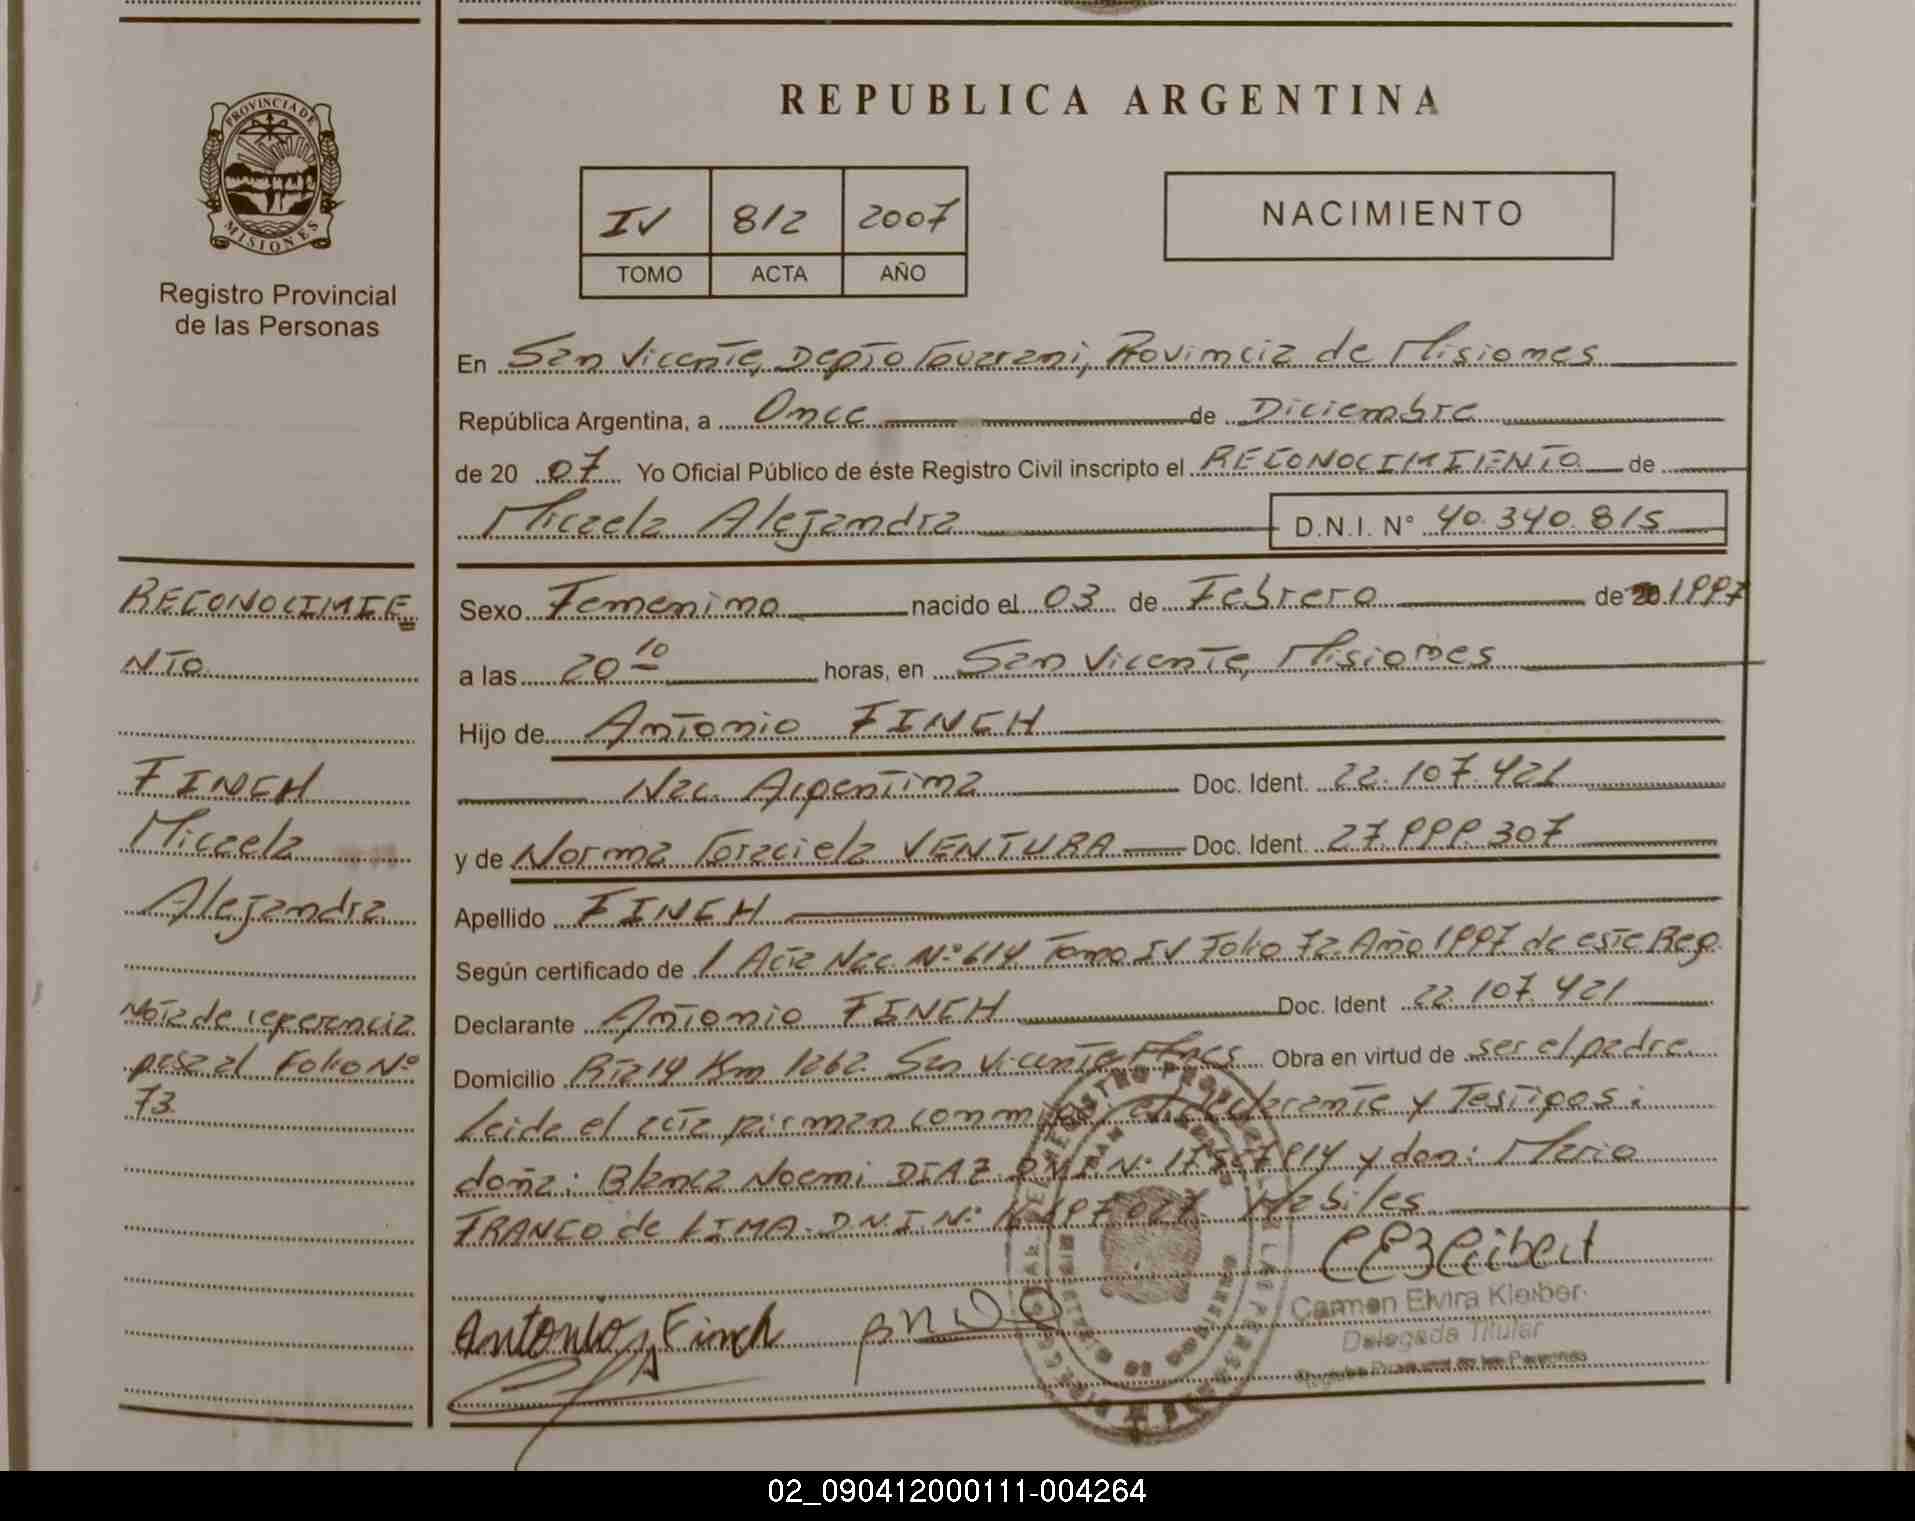 PROVINCIA DE
MISIONES
Registro Provincial
de las Personas
REPUBLICA ARGENTINA
IV 812 2007
TOMO ACTA AÑO
NACIMIENTO
En San Vicente, Depto Guarani, Provincia de Misiones
República Argentina, a Once de Diciembre
de 20 07 Yo Oficial Público de éste Registro Civil inscripto el RECONOCIMIENTO de
Micaela Alejandra D.N.I. N° 40.340.815
RECONOCIMIE
NTO
FINCH
Micaela
Alejandra
Nota de referencia
pasa al Folio Nº
73
Sexo Femenino nacido el 03 de Febrero de 20 1997
a las 20 10 horas, en San Vicente, Misiones
Hijo de Antonio FINCH
Nac. Argentina Doc. Ident. 22.107.421
y de Norma Graciela VENTURA Doc. Ident. 27.999.307
Apellido FINCH
Según certificado de 1 Acta Nac. Nº 614 Tomo IV Folio 72. Año 1997 de este Reg.
Declarante Antonio FINCH Doc. Ident 22.107.421
Domicilio Rta 14 Km 1262. San Vicente Mnes Obra en virtud de ser el padre
Leida el acta firman conmigo el declarante y Testigos:
doña: Blanca Noemi DIAZ D.N.I. Nº 17 914 y don: Mario
FRANCO de LIMA. D.N.I. Nº Habiles
Antonio Finch
Carmen Elvira Kleiber
Delegada Titular
Registro Provincial de las Personas
02_090412000111-004264